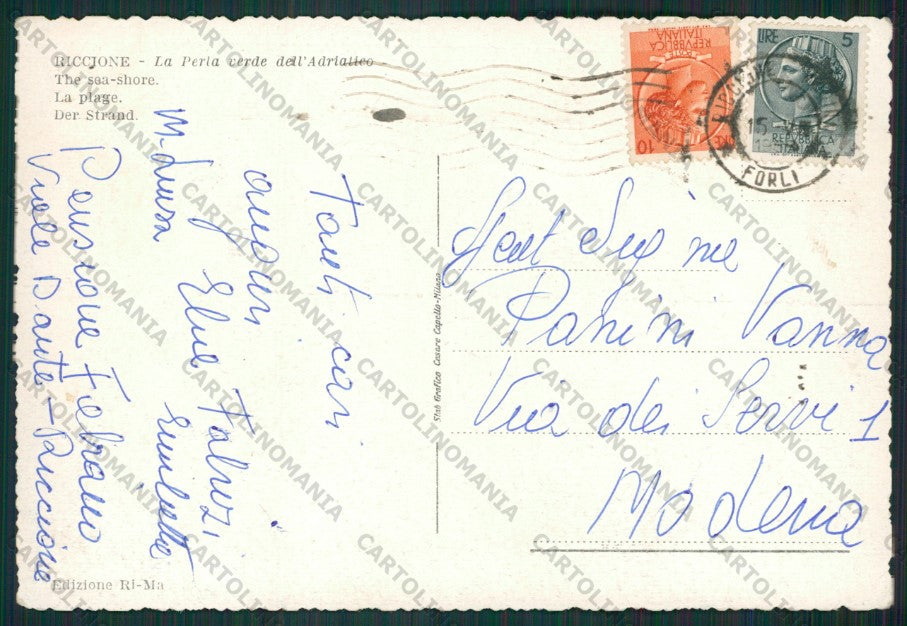 RICCIONE - La Perla verde dell'Adriatico
The sea-shore.
La plage.
Der Strand.
LIRE 5
REPVBBLICA
ITALIANA
LIRE 10
REPVBBLICA
ITALIANA
FORLI
Tanti cari
auguri
Elva Fabrizi
M. Luisa
Pensione Febrano
Viale Dante - Riccione
Stab. Grafico Cesare Capello-Milano
Gent Sig na
Panini Vanna
Via dei Servi 1
Modena
Edizione Ri-Ma
CARTOLINOMANIA